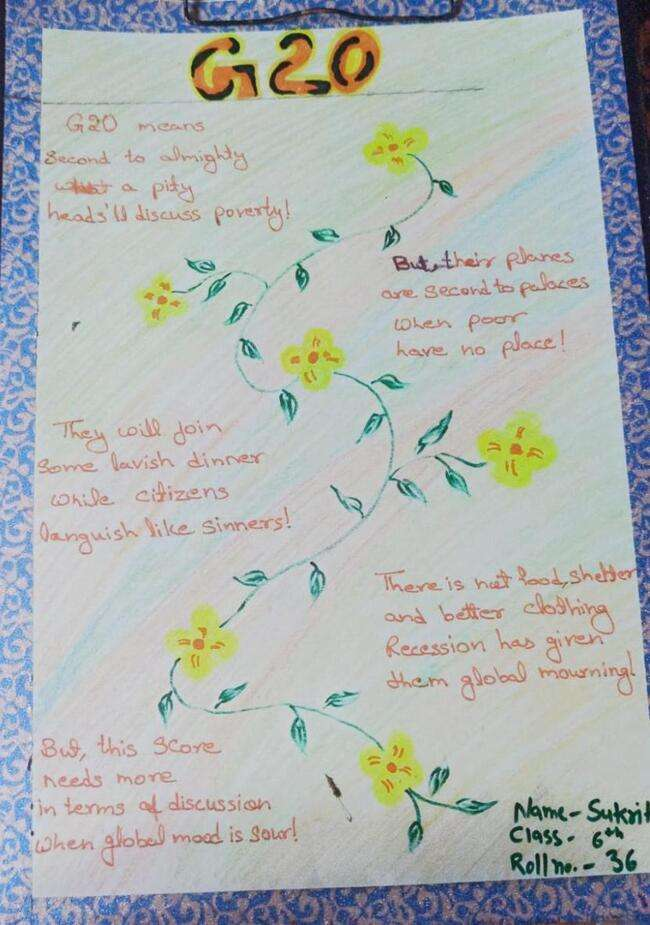 G20
G20 means
second to almighty
what a pity
heads'll discuss poverty!
But, their planes
are second to palaces
when poor
have no place!
They will join
some lavish dinner
while citizens
languish like sinners!
There is not food, shelter
and better clothing
Recession has given
them global mourning!
But, this score
needs more
in terms of discussion
when global mood is sour!
Name- Sukrit
Class- 6th
Roll no.- 36